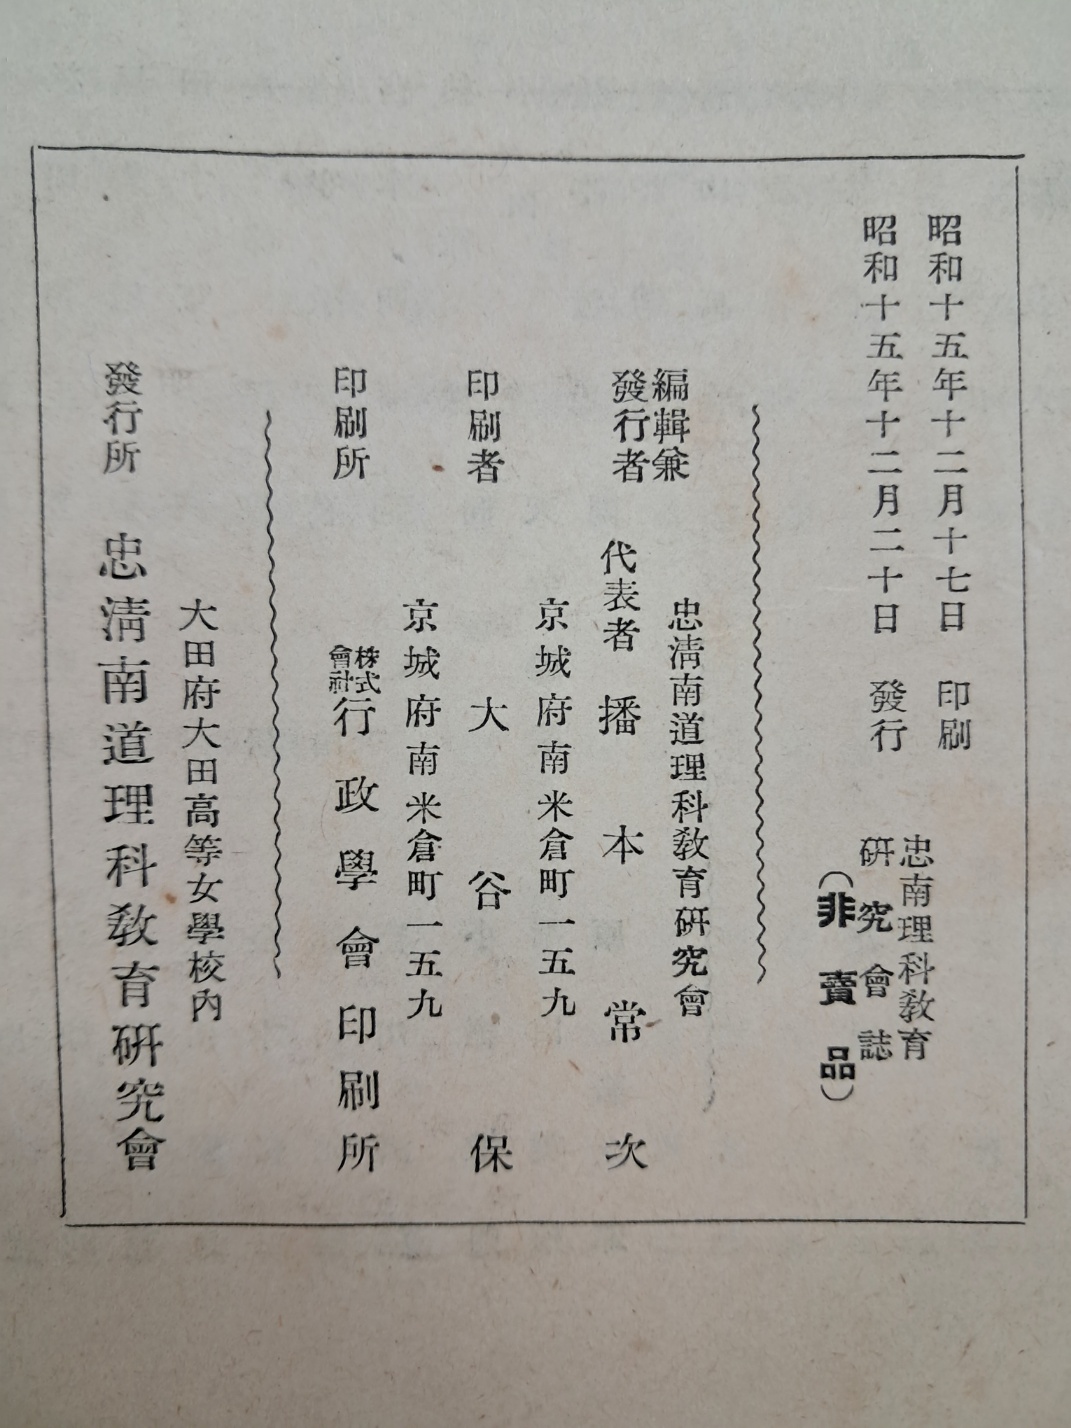 昭和十五年十二月十七日　印刷
昭和十五年十二月二十日　發行
忠南理科敎育
硏究會誌
（非賣品）
忠淸南道理科敎育硏究會
編輯兼
發行者　代表者　播本常次
京城府南米倉町一五九
印刷者　大谷保
京城府南米倉町一五九
印刷所　株式會社行政學會印刷所
大田府大田高等女學校內
發行所　忠淸南道理科敎育硏究會